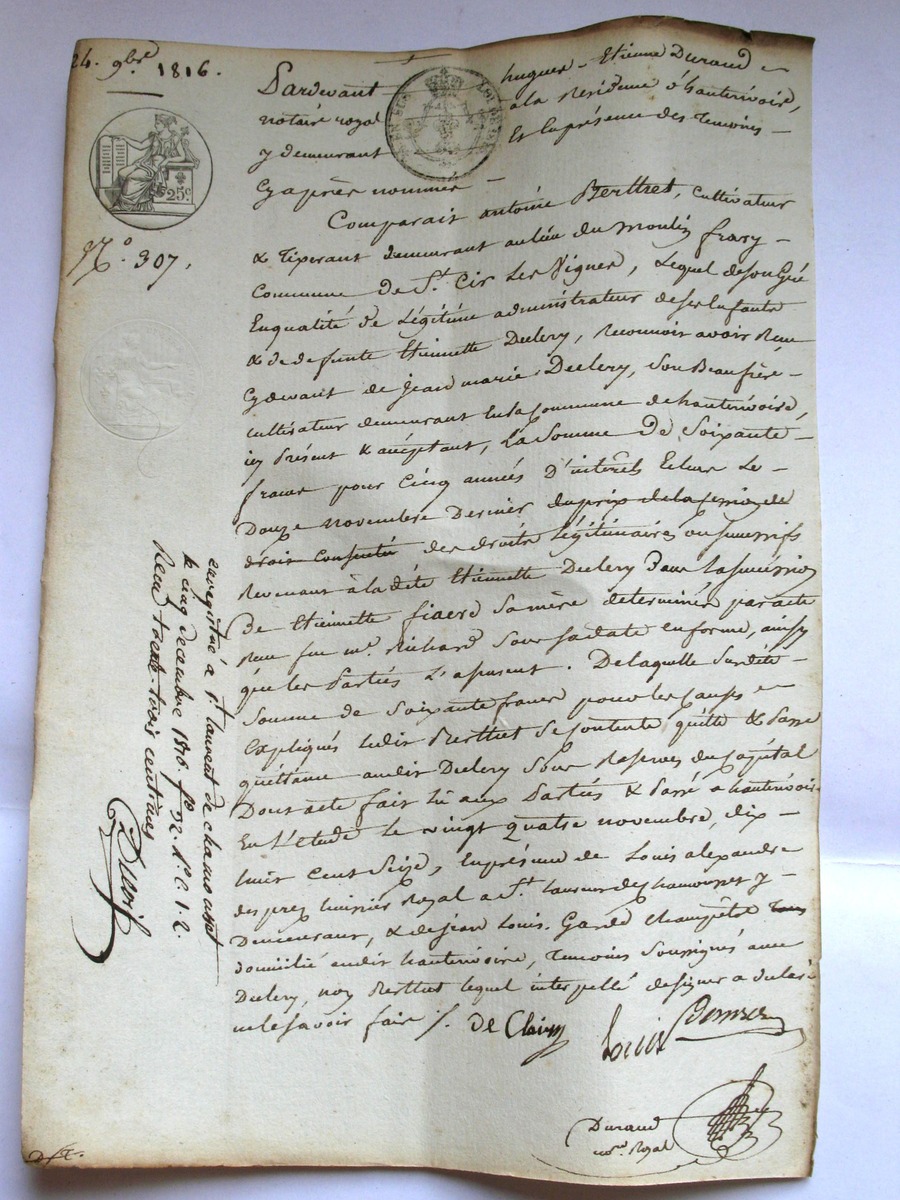 24. 9bre 1816.
25c.
N.o 307.
Pardevant hugues-Etienne Durand
notaire royal a la Residence d'hauterivoire,
y demeurant Et En présence des Temoins
Cy après nommés
Comparait antoine Berthet, cultivateur
& Tiperant demeurant au lieu du moulin frary
Commune de St. Cir Les Vignes, Lequel de son Gré
En qualité de Légitime administrateur de ses Enfants
& de defunte Etiennette Duclery, Reconnoit avoir Reçu
Cydevant de jean marie Duclery, Son Beaufrère
cultivateur demeurant En la Commune de hauterivoire,
icy Présent & acceptant, La Somme De Soixante
francs pour Cinq années D'interêts Echus Le
Douze novembre Dernier du prix de la cession de
droit des droits Légitimaires ou successifs
Revenant à la dite Etiennette Duclery Dans La succession
De Etiennette fiaerd Sa mère determinés par acte
Reçu par me. Richard Sous Sa date en forme, ainsy
que les Parties L'assurent. De laquelle Susdite
Somme de Soixante francs pour les Causes
Expliqués Ledit Berthet Se contente quitte & Passe
quittance audit Duclery Sous Reserves du Capital
Dont acte fait Lû aux Parties & Passé a hauterivoire
En L'étude le vingt quatre novembre, dix
huit Cent Seize, En présence de Louis alexandre
desprez huissier Royal a St. Laurent de chamousset y
Demeurant, & de jean Louis. Garde Champêtre
domicilié audit hauterivoire, Temoins Soussignés avec
Duclery, non Berthet lequel interpellé de signer a declaré
ne le savoir faire
Louis
Durand
not. Royal
enregistré à St. Laurent de chamousset
le cinq décembre 1816 fo 92. Ro. C. 1. 2.
Reçu trente trois centimes